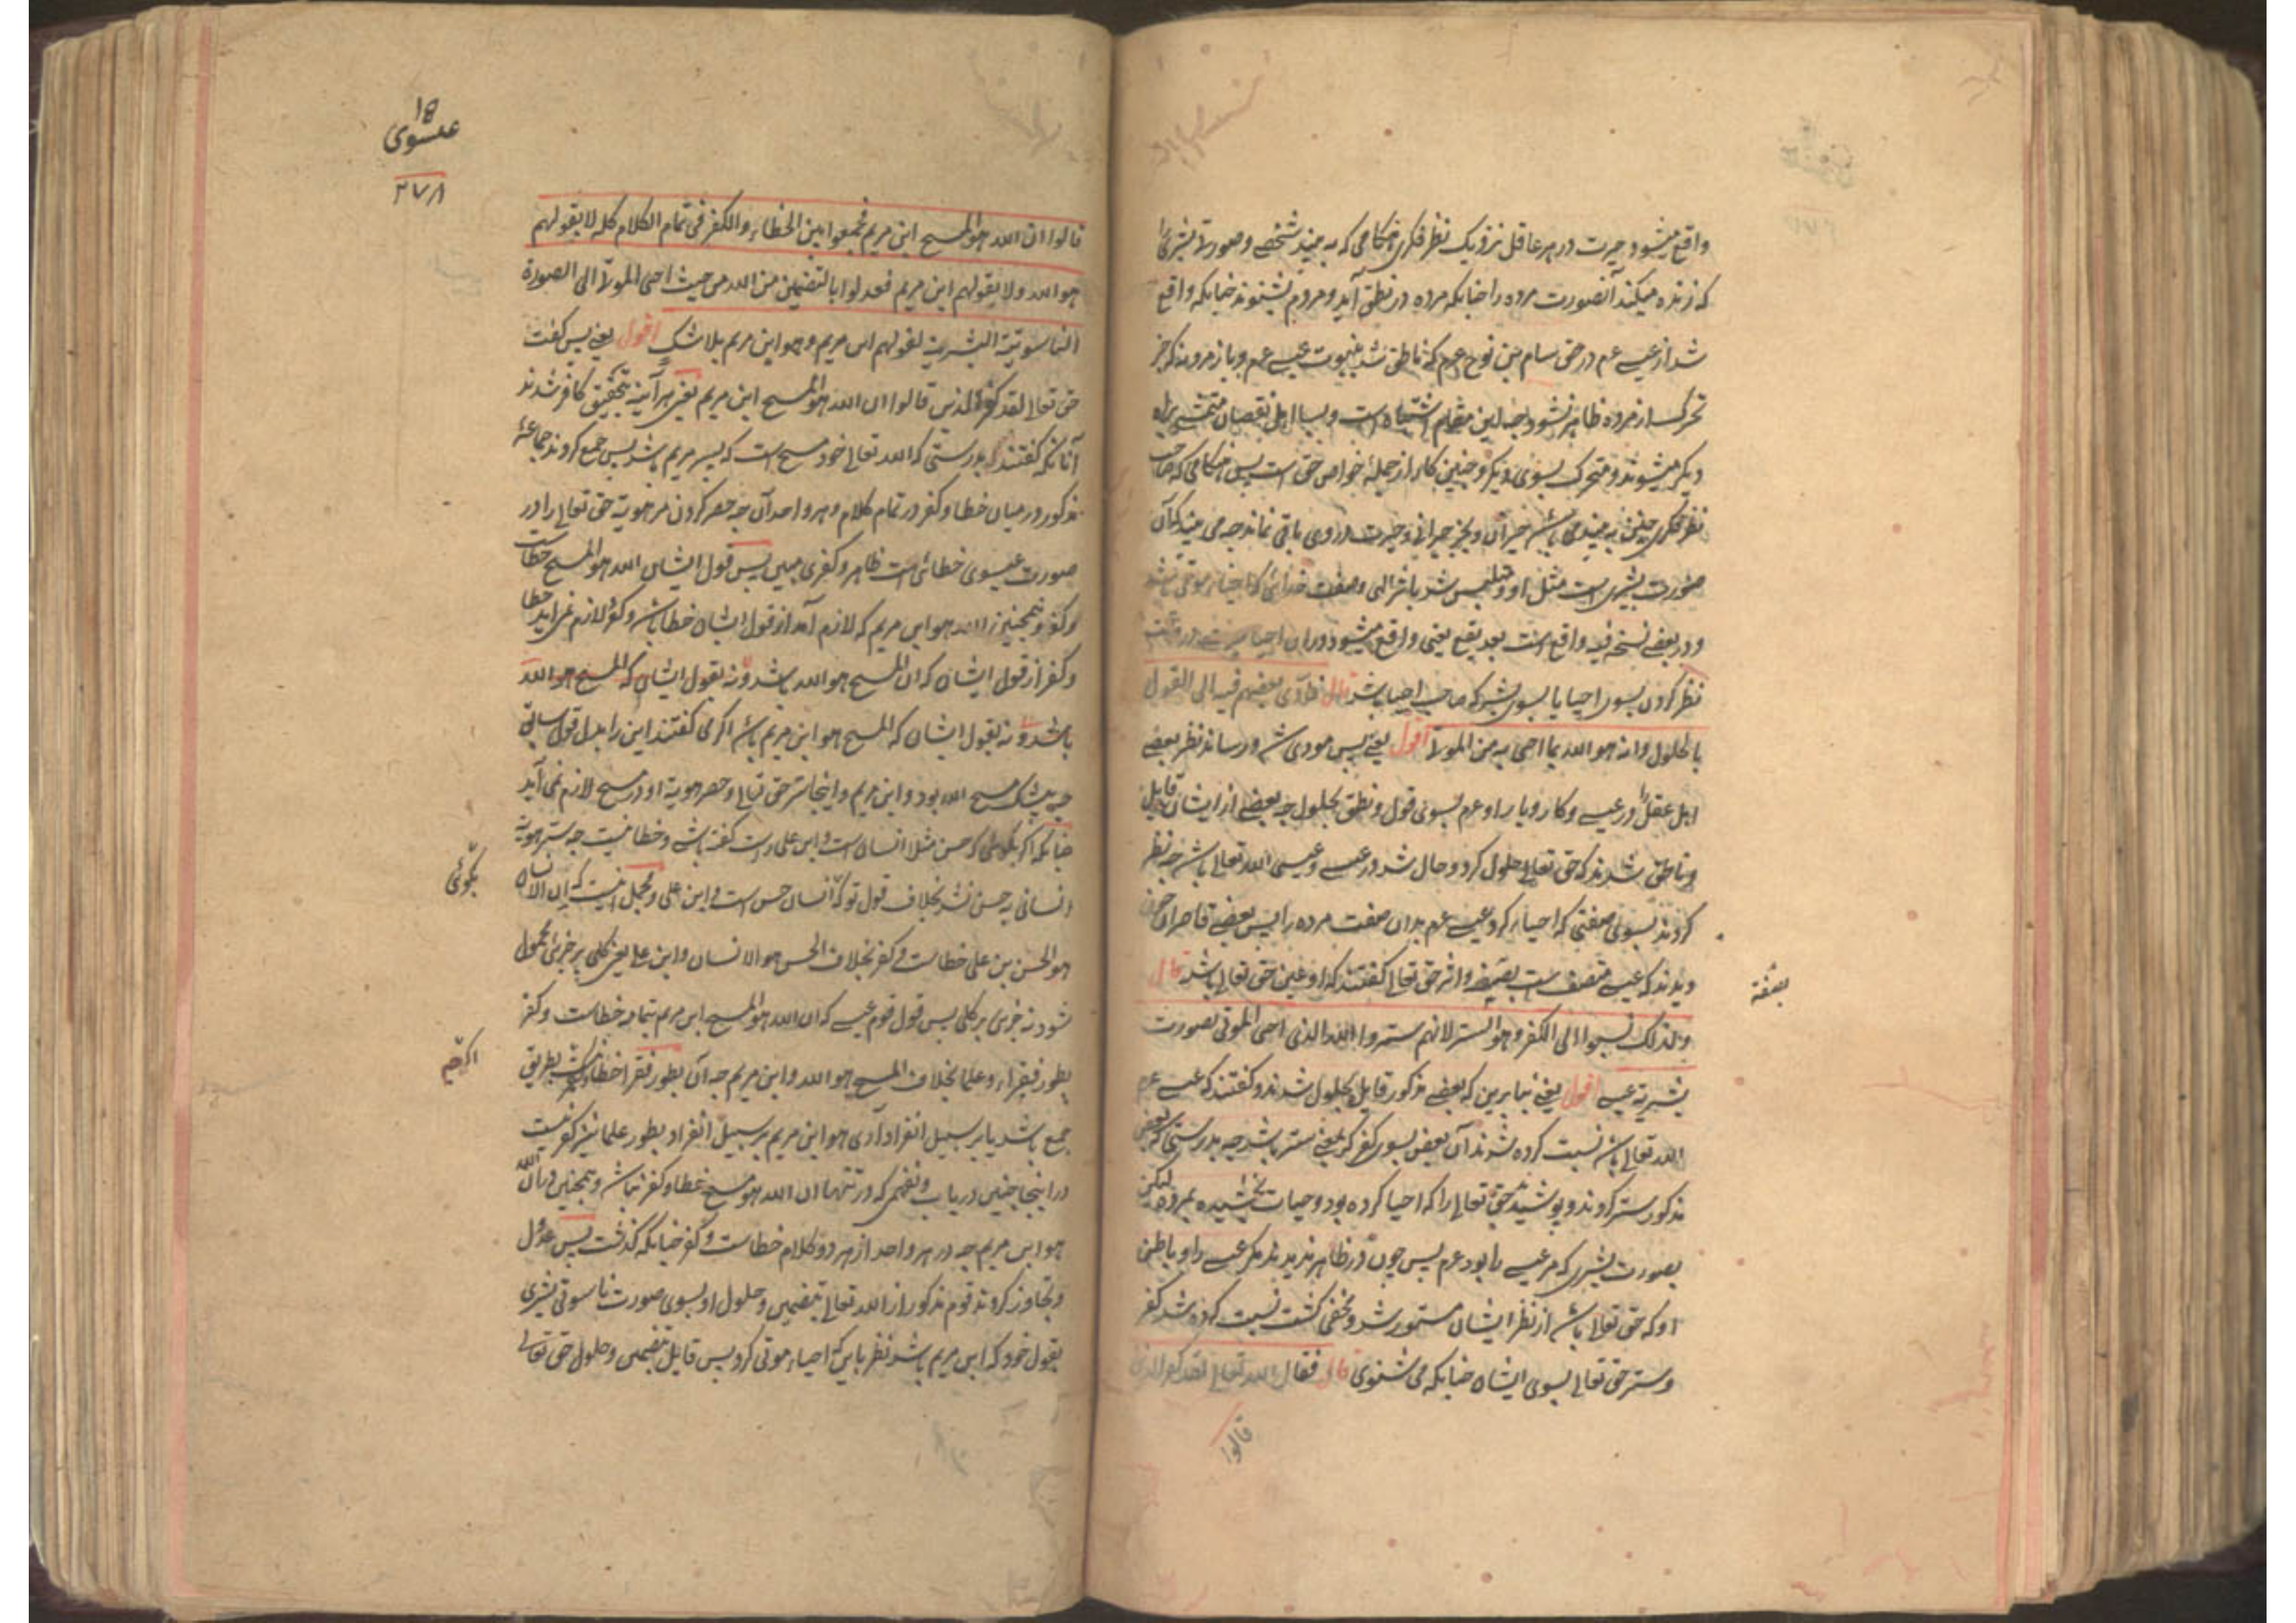 واقع میشود حیرت در هر عاقل نزدیک نظر فکری هنگامی که به بیند شخصے و صورتا بشری را
که زنده میکند آنصورت مرده را چنانکه مرده در نطق آید و مردم بشنوند چنانکه واقع
شد از عیسے عم در حق سام بن نوح عم که ناطق شد بنبوت عیسے عم و باز مرد و بدیگر جز
تحرک از مرده ظاهر نشود چه این مقام اشتباه است و بسا اهل نقصان
دیگر میشوند و متحرک بسوی دیگر و چنین کار از جملهٔ خواص حق است پس هنگامی که صاحب
نظر فکری چنین به بیند می باشد حیران و بجز حیرانی و حیرت در وی باقی نماند چه می بیند که آن
صورت بشری است مثل او و متلبس شد باثر الهی و صفت خدائی که احیاء موتی باشد
و در بعضے نسخه فیه واقع است بعد یقع یعنی واقع میشود دران احیا حیرت در وقت
نظر کردن بسوی احیا یا بسوی بشر که صاحب احیا باشد قال فادّی بعضهم فیه الی القول
بالحلول و انه هو الله بما احیی به من الموتا اقول یعنے پس مودی شد و رساند نظر بعضے
اهل عقل را در عیسے و کار و بار او عم بسوی قول و نطق بحلول چه بعضے از ایشان قایل
و ناطق شدند که حق تعالی حلول کرد و حال شد در عیسے و عیسی الله تعالی باشد چه نظر
کردند بسوی صفتی که احیاء کرد عیسے عم بدان صفت مرده را پس بعضے قاصران چون
دیدند که عیسے متصف است بصفة و اثر حق تعالی گفتند که او عین حق تعالی باشد قال
بصفة
ولذلک نسبوا الی الکفر و هو الستر لانهم ستروا الله الذی احیی الموتی بصورت
بشریة عیسے اقول یعنے بنابرین که بعضے مذکور قایل بحلول شدند و گفتند که عیسے عم
الله تعالی باشد نسبت کرده شدند آن بعض بسوی کفر که بمعنے ستر باشد چه بدرستی که بعض
مذکور ستر کردند و پوشیدند حق تعالی را که احیا کرده بود و حیات بخشیده بمرده لیکن
بصورت بشری که مر عیسے را بود عم پس چون در ظاهر ندیدند مگر عیسے را و باطن
او که حق تعالی باشد از نظر ایشان مستور شد و مخفی گشت نسبت کرده شد کفر
و ستر حق تعالی بسوی ایشان چنانکه می شنوی قال فقال الله تعالی لقد کفر الذین
قالوا
۱۵
عیسوی
۲۷۸
قالوا ان الله هو المسیح ابن مریم فجمعوا بین الخطاء و الکفر فی تمام الکلام کله لا بقولهم
هو الله و لا بقولهم ابن مریم فعدلوا بالتضمین من الله من حیث احیی الموتا الی الصورة
الناسوتیة البشریة لقولهم ابن مریم و هو ابن مریم بلا شک اقول یعنے پس گفت
حق تعالی لقد کفر الذین قالوا ان الله هو المسیح ابن مریم یعنی هر آینه بتحقیق کافر شدند
آنانکه گفتند بدرستی که الله تعالی خود مسیح است که پسر مریم باشد پس جمع کردند جماعهٔ
مذکور در میان خطا و کفر در تمام کلام و هر واحد آن چه حصر کردن مر هویة حق تعالی را در
صورت عیسوی خطائی است ظاهر و کفری مبین پس قول ایشان الله هو المسیح خطاست
و کفر و همچنین الله هو ابن مریم که لازم آمد از قول ایشان خطا باشد و کفر لازم نمی آید خطا
و کفر از قول ایشان که ان المسیح هو الله باشد و نه بقول ایشان که المسیح هو الله
باشد و نه بقول ایشان که المسیح هو ابن مریم باشد اگر می گفتند این را بدل قول سابق
چه بیشک مسیح الله بود و ابن مریم و اینجا ستر حق تعالی و حصر هویة او در مسیح لازم نمی آید
چنانکه اگر بگوئی که حسن مثلا انسان است و ابن علی راست گفته باشی و خطا نیست چه ستر هویة
بگوئی
انسانی به حسن نشد بخلاف قول تو که انسان حسن است و ابن علی و مجمل اینست که ان الانسان
هو الحسن بن علی خطاست و کفر بخلاف الحسن هو الانسان و ابن علی یعنی کلی بر جزئی محمول
شود نه جزئی بر کلی پس قول قوم عیسے که ان الله هو المسیح ابن مریم بتمامه خطاست و کفر
بطور فقراء و علما بخلاف المسیح هو الله و ابن مریم چه آن بطور فقرا خطا و کفر نیست بطریق
اگرچه
جمع باشد یا بر سبیل انفراد آری هو ابن مریم بر سبیل انفراد بطور علما نیز کفر نیست
در اینجا چنین دریاب و نفهمی که در تنها ان الله هو مسیح خطا و کفر نباشد و همچنین در ان الله
هو ابن مریم چه در هر واحد از هر دو کلام خطاست و کفر چنانکه گذشت پس عدول
و تجاوز کردند قوم مذکور از الله تعالی بتضمین و حلول او بسوی صورت ناسوتی بشری
بقول خود که ابن مریم باشد نظر باین که احیاء موتی کرد پس قایل بتضمین و حلول حق تعالی